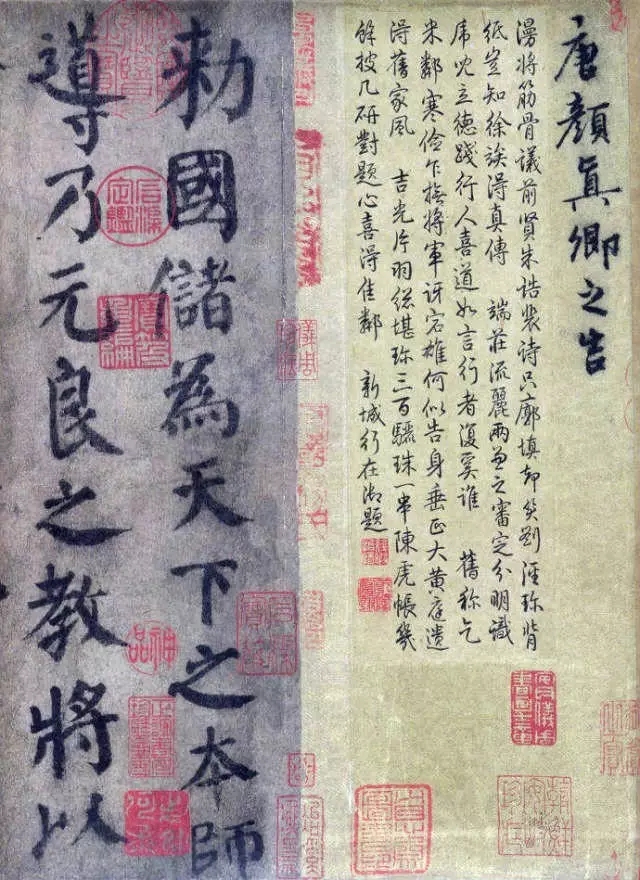 唐顏真卿之告
漫將筋骨議前賢朱誥裴詩只廓填却笑劉涇珍背
紙豈知徐誒得真傳 端莊流麗兩兼之審定分明識
虎兒立德踐行人喜道如言行者復奚誰 舊稱乞
米鄰寒儉乍撫將軍訝宕雄何似告身垂正大黃庭遺
得舊家風 吉光片羽總堪珍三百驪珠一串陳虎帳幾
餘披几研對題心喜得佳鄰 新城行在御題
勑國儲為天下之本師
導乃元良之教將以
神品